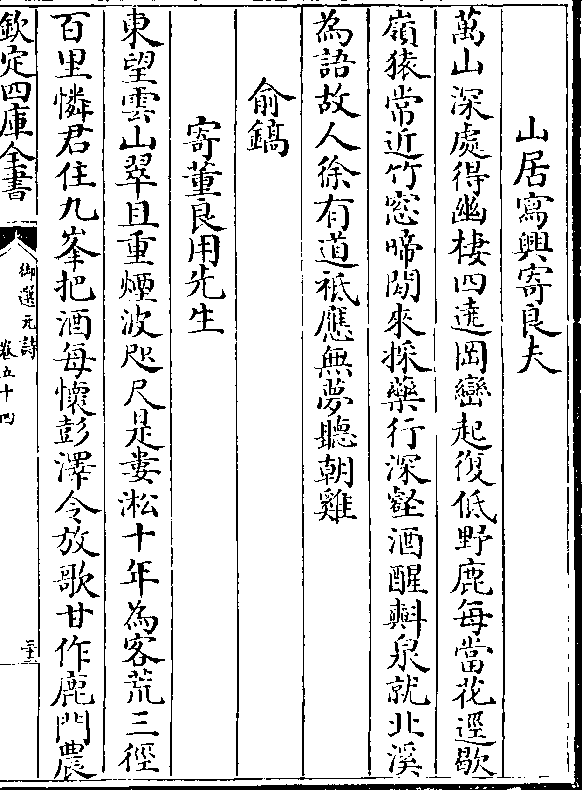 山居寫興寄良夫
萬山深處得幽棲四遶岡巒起復低野鹿每當花逕歇
嶺猿常近竹窓啼閑來採藥行深壑酒醒㪺泉就北溪
為語故人徐有道祗應無夢聽朝雞
俞鎬
寄董良用先生
東望雲山翠且重煙波咫尺是婁淞十年為客荒三徑
百里憐君住九峯把酒每懷彭澤令放歌甘作鹿門農
欽定四庫全書
御選元詩
卷五十四
二十三